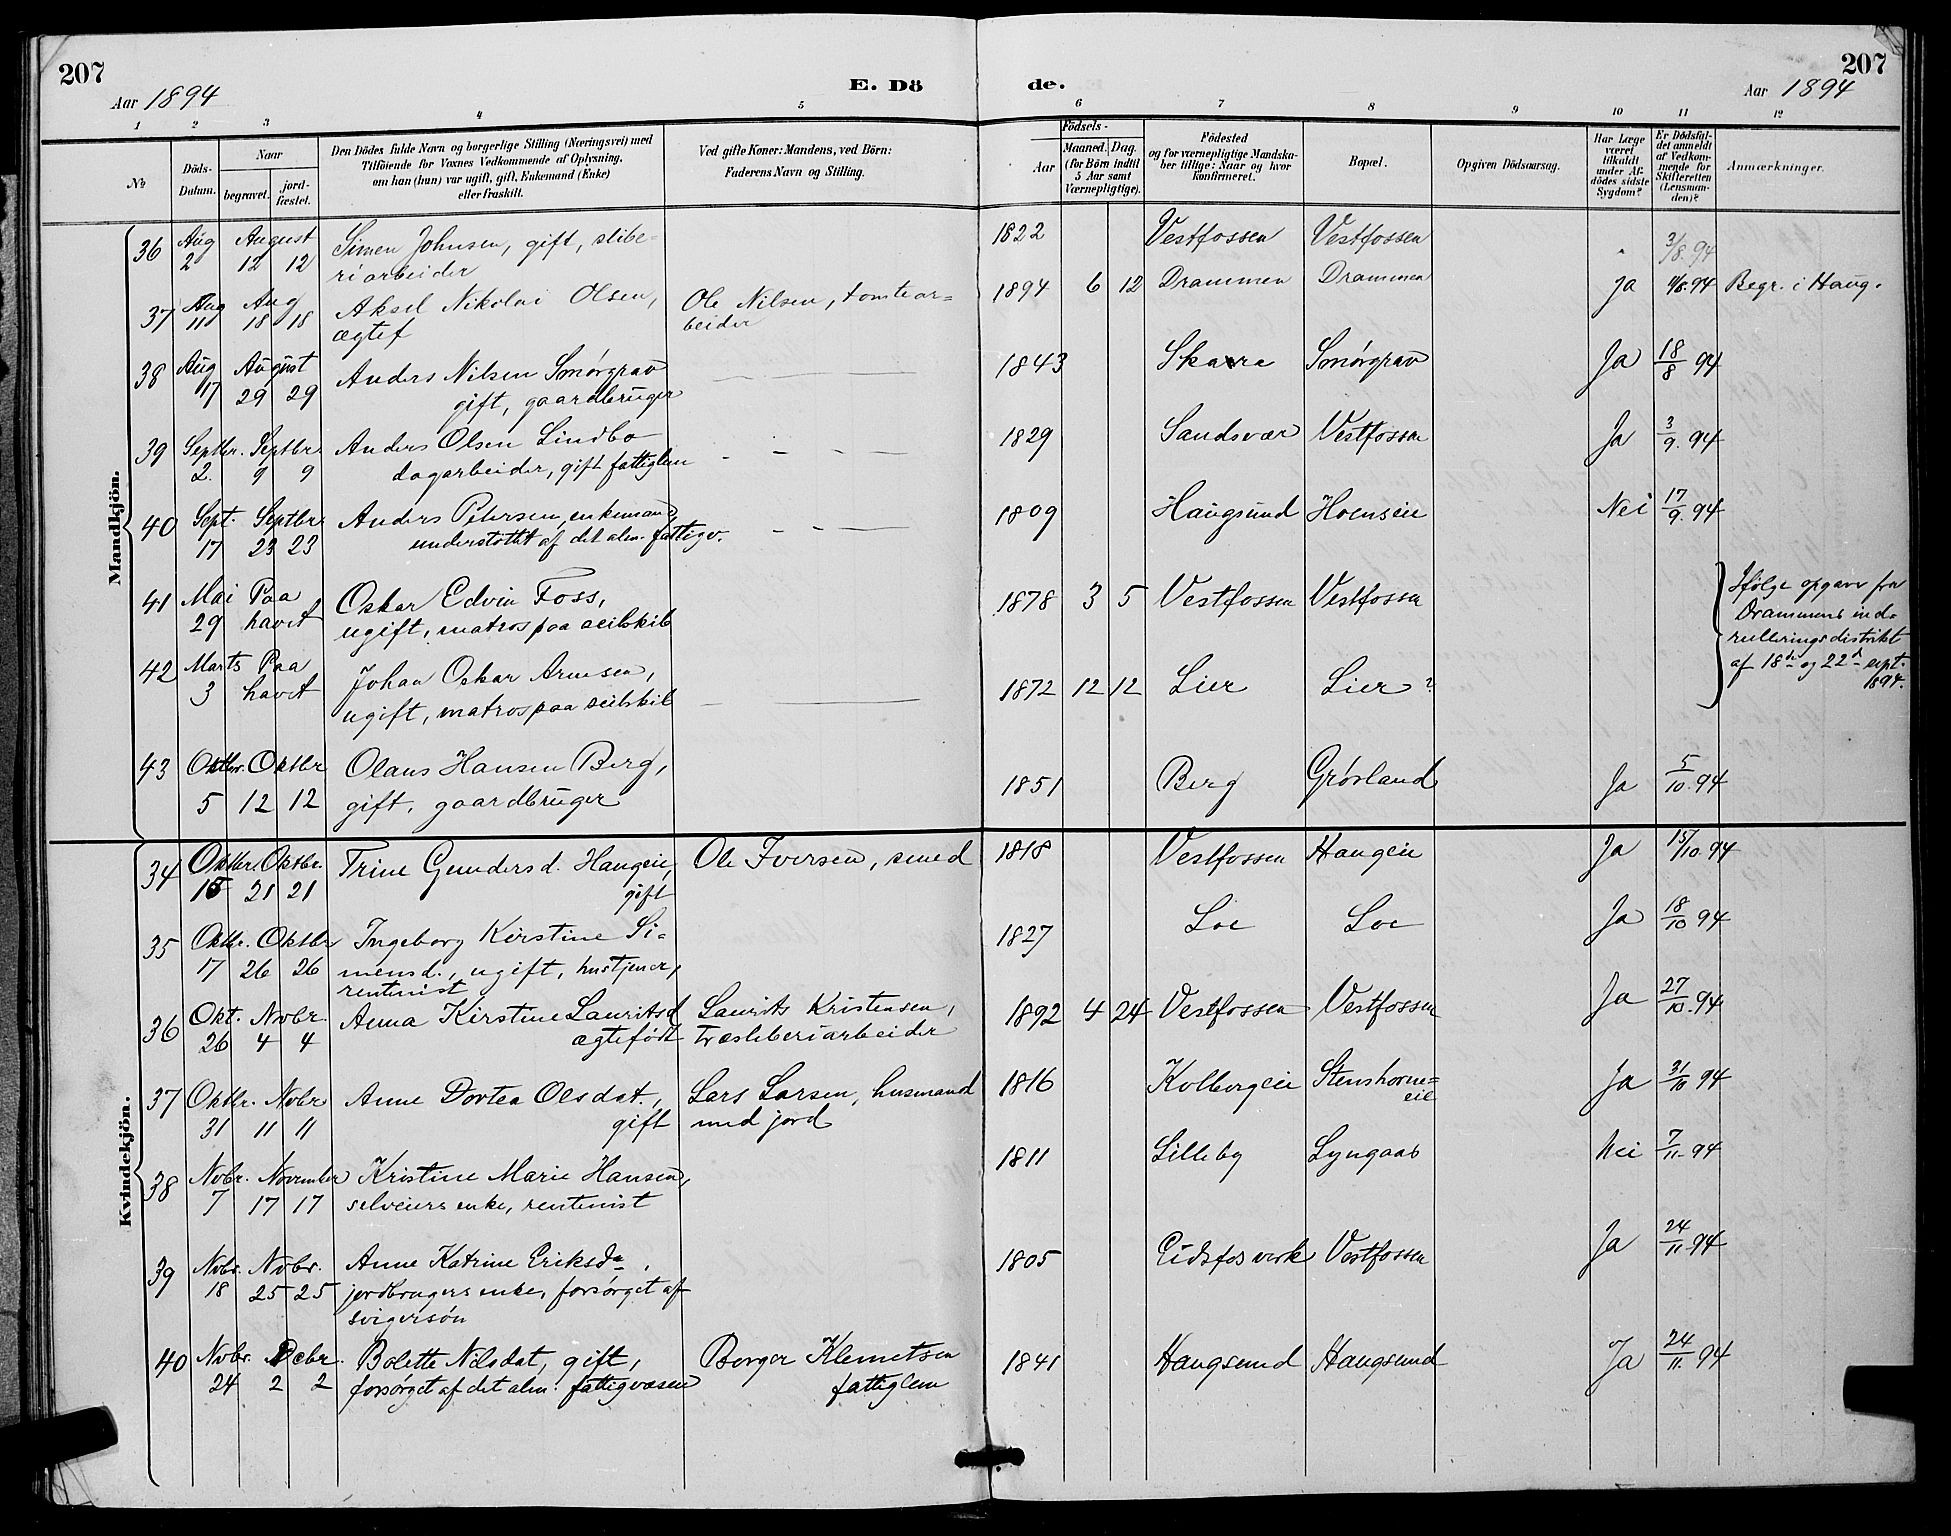 207
Aar 1894
E. Dö
de.
207
Aar 1894
1 2 3 4 5 6 7 8 9 10 11 12
No
Döds-Datum.
Naar
begravet.
jord-fæstet.
Den Dödes fulde Navn og borgerlige Stilling (Næringsvei) med
Tilföiende for Voxnes Vedkommende af Oplysning,
om han (hun) var ugift, gift, Enkemand (Enke)
eller fraskilt.
Ved gifte Koner: Mandens, ved Börn:
Faderens Navn og Stilling.
Födsels-
Aar
Maaned. Dag.
(for Börn indtil
5 Aar samt
Værnepligtige).
Födested
og for værnepligtige Mandska-
ber tillige: Naar og hvor
konfirmeret.
Bopæl.
Opgiven Dödsaarsag.
Har Læge
været
tilkaldt
under Af-
dödes sidste
Sygdom?
Er Dödsfal-
det anmeldt
af Vedkom-
mende for
Skifteretten
(Lensman-
den)?
Anmærkninger.
Mandkjön.
36 Aug August Simen Johnsen, gift, slibe= 1822 Vestfossen Vestfossen " 3/8.94
2 12 12 riarbeider
37 Aug Aug Aksel Nikolai Olsen, Ole Nilsen, tomtear= 1894 6 12 Drammen Drammen ja 11/8.94 Begr. i Haug.
11 18 18 ægtef beider
38 Aug August Anders Nilsen Smørgrav 1843 Skara Smørgrav Ja 18/8 94
17 29 29 gift, gaardbruger
39 Septbr. Septbr. Anders Olsen Lindbo 1829 Sandsvær Vestfossen Ja 3/9.94
2. 9 9 dagarbeider, gift fattiglem
40 Sept. Septbr Anders Petersen, enkemand, 1809 Haugsund Hoenseie Nei 17/9.94
17 23 23 understøttet af det alm. fattigv.
41 Mai Paa Oskar Edvin Foss, 1878 3 5 Vestfossen Vestfossen
29 havet ugift, matros paa seilskib
42 Marts Paa Johan Oskar Arnesen, 1872 12 12 Lier Lier?
3 havet ugift, matros paa seilskib
Ifølge opgave fra
Drammens ind=
rulleringsdistrikt
af 18de og 22d sept.
1894.
43 Oktbr. Oktbr Olaus Hansen Berg, 1851 Berg Grøsland Ja 5/10.94
5 12 12 gift, gaardbruger
Kvindekjön.
34 Oktbr. Oktbr. Trine Gundersd. Haugeie, Ole Iversen, smed 1818 Vestfossen Haugeie Ja 15/10.94
15 21 21 gift
35 Oktbr. Oktbr Ingeborg Kirstine Si= 1827 Loe Loe Ja 18/10 94
17 26 26 mensd., ugift, hustjener,
rentenist
36 Okt. Novbr. Anna Kirstine Lauritsd Laurits Kristensen, 1892 4 24 Vestfossen Vestfossen Ja 27/10.94
26 4 4 ægtefødt træsliberiarbeider
37 Oktbr. Novbr Anne Dortea Olsdat., Lars Larsen, husmand 1816 Kolbergeie Stenshorne= Ja 31/10 94
31 11 11 gift med jord eie
38 Novbr. November Kristine Marie Hansen, 1811 Lilleby Lyngaas Nei 7/11.94
7 17 17 selveiers enke, rentenist
39 Novbr. Novbr. Anne Katrine Eriksda, 1805 Eidsfos verk Vestfossen Ja 24/11.94
18 25 25 jordbrugers enke, forsørget af
svigersøn
40 Novbr. Decbr. Bolette Nilsdat, gift, Borger Klemetsen 1841 Haugsund Haugsund Ja 24/11.94
24 2 2 forsørget af det alm. fattigvæsen fattiglem